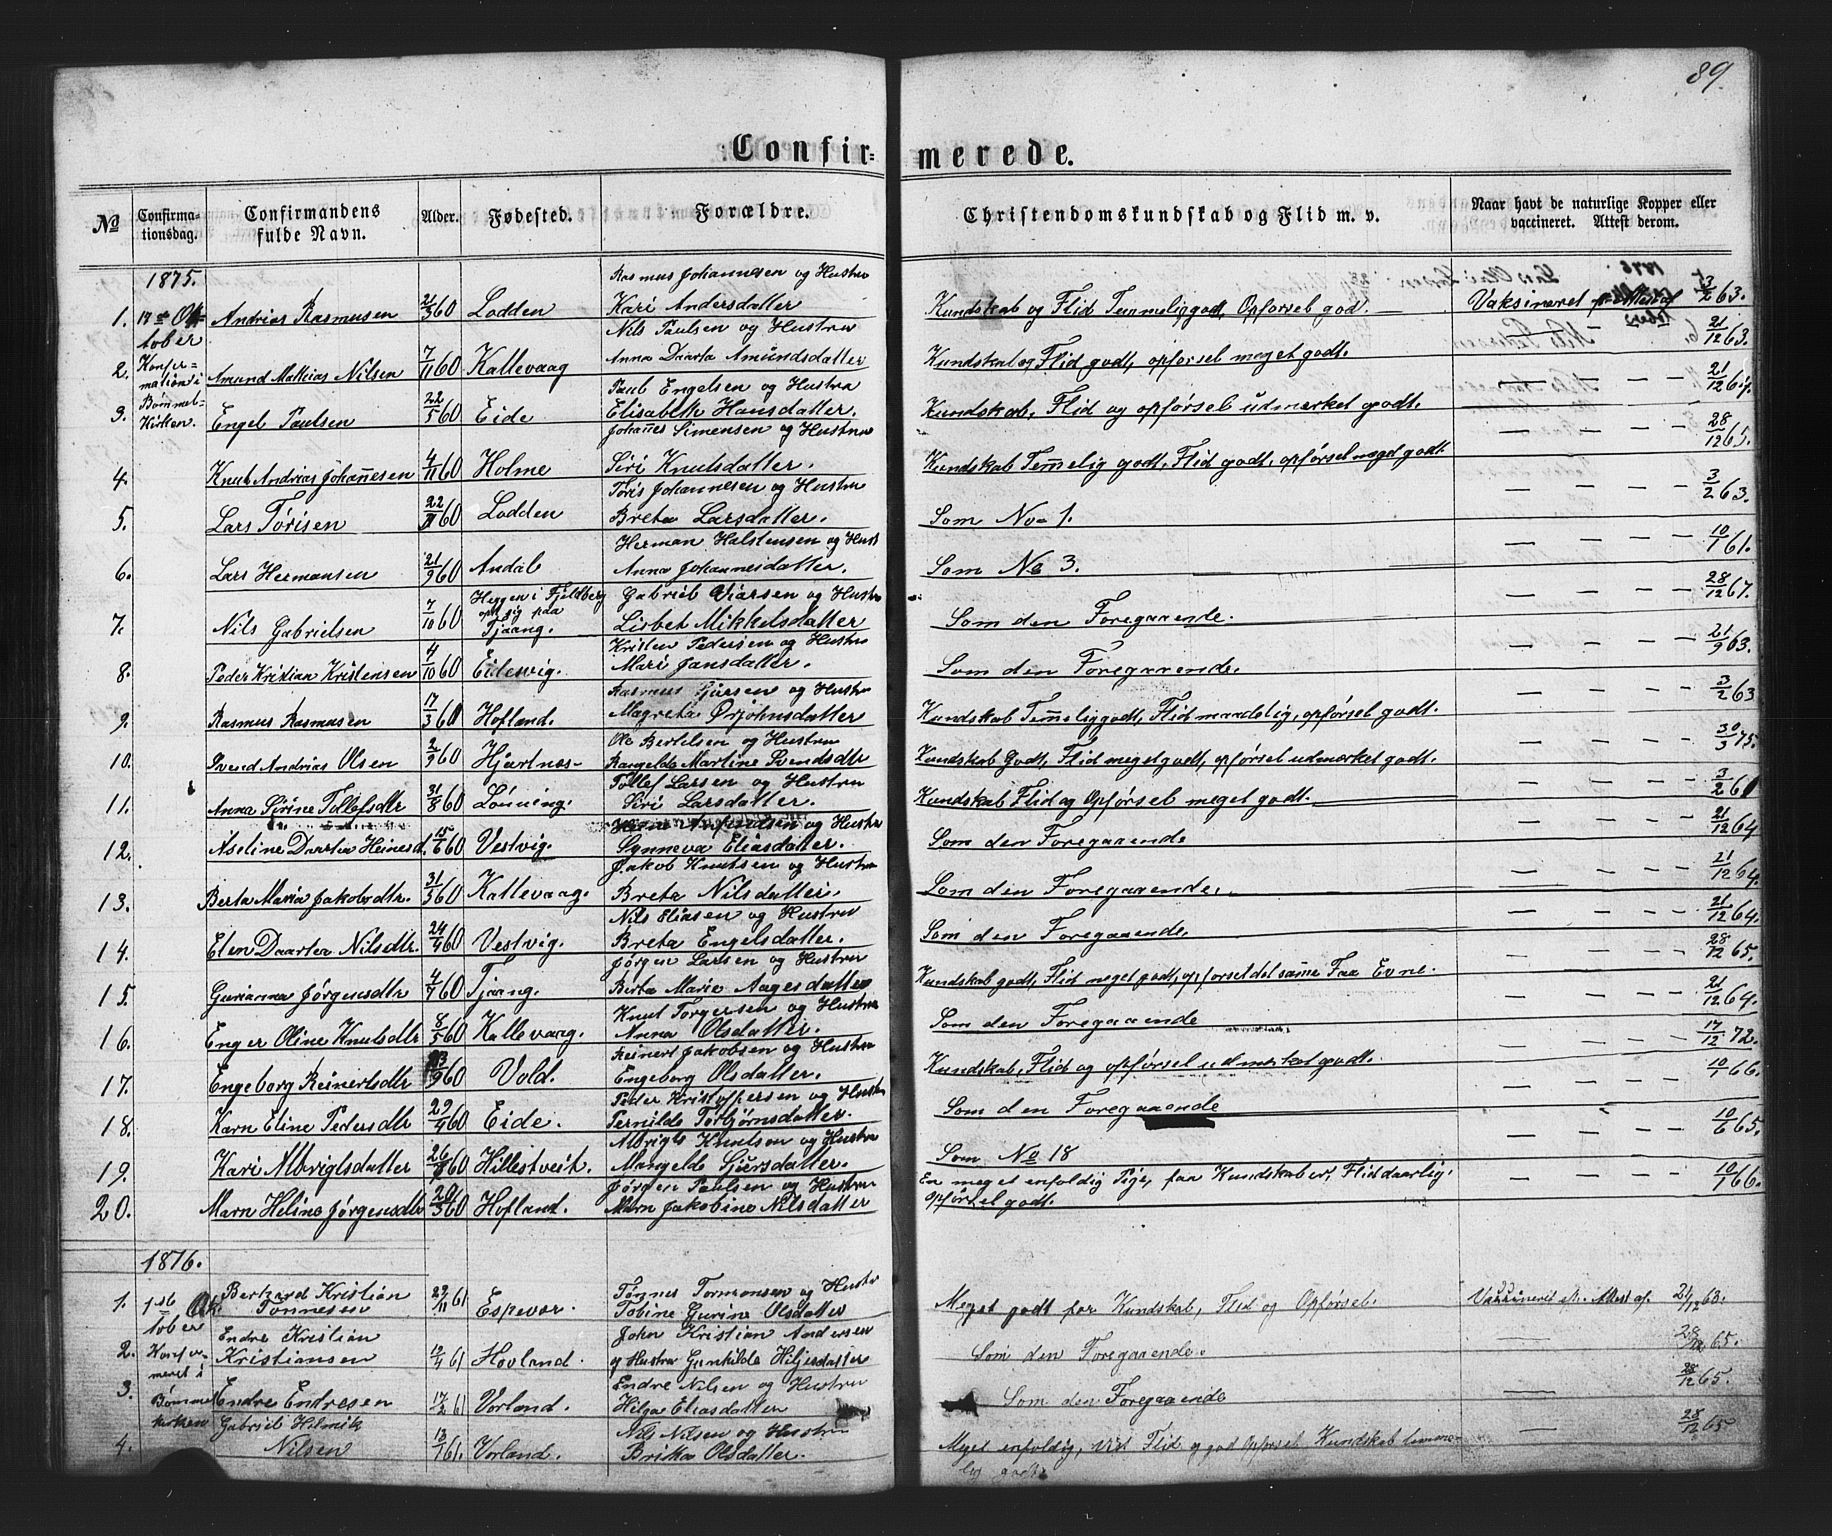 89.
Confir= merede.
No Confirmationsdag. Confirmandens fulde Navn. Alder. Fødested. Forældre. Christendomskundskab og Flid m. v. Naar havt de naturlige Kopper eller vaccineret. Attest derom.
1875.
Rasmus Johannesen og Hustru
1. 17de Ok= Andrias Rasmusen 60 Lodden Kari Andersdatter Kundskab og Flid Temmeliggod, Opførsel god. Vaksineret 3/2 63.
tober Nils Paulsen og Hustru
2. Konfir= mation i Amund Mathias Nilsen 7/11 60 Kallevaag Anna Daarta Amundsdatter Kundskab og Flid godt, opførsel meget godt. — — — 21/12 63.
Paul Engelsen og Hustru
3. Bømmel- Kirken. Engel Paulsen 22/5 60 Eide Elisabeth Hansdatter. Kundskab, Flid og opførsel udmærket godt. — — — 21/12 64.
Johañes Simensen og Hustru
4. Knut Andrias Johañesen 4/11 60 Holme Siri Knutsdatter. Kundskab Tem̄elig godt, Flid godt, opførsel meget godt. — — — 28/12 65.
Tøris Johannesen og Hustru
5. Lars Tørisen 60 Lodden Breta Larsdatter. Som No 1. — — — 3/2 63.
Herman Halstensen og Hust
6. Lars Hermansen 21/9 60 Andal Anna Johannesdatter. Som No 3. — — — 10/1 61.
Heggen i Fjeldberg Gabriel Viarsen og Hustru
7. Nils Gabrielsen 7/10 60 opst sig paa Tjaang. Lisbet Mikkelsdatter Som den Foregaaende. — — — 28/12 67.
Kristen Pedersen og Hustru
8. Peder Kristian Kristensen 4/10 60 Eidesvig. Mari Jansdatter. Som den Foregaaende. — — — 21/9 63.
Rasmus og Hustru
9. Rasmus Rasmusen 17/3 60 Hofland. Magreta Ørjohnsdatter Kundskab Tem̄eliggodt, Flid maadelig, opførsel godt. — — — 3/2 63
Ole Bertelsen og Hustru
10. Svend Andrias Olsen 2/9 60 Hjartnes- Rangelde Martine Svendsdtr Kundskab Godt, Flid meget godt, opførsel udmærket godt. — — — 30/3 75.
Tollef Larsen og Hustru
11. Anna Sirine Tollefsdtr 31/8 60 Lønning. Siri Larsdatter. Kundskab Flid og Opførsel meget godt. — — — 3/2 61
og Hustru
12. Aseline Daartea Heinesd. 15/6 60 Vestvig. Synneva Eliasdatter. Som den Foregaaende — — — 21/12 64
Jakob Knutsen og Hustru
13. Berta Maria Jakobsdtr. 31/5 60 Kallevaag. Breta Nilsdatter. Som den Foregaaende. — — — 21/12 64.
Nils Eliasen og Hustru
14. Elen Daartea Nilsdtr. 60 Vestvig. Breta Engelsdatter. Som den Foregaaende. — — — 21/12 64.
Jørgen Larsen og Hustru
15. Gurianna Jørgensdtr 60 Tjaang. Berta Marie Aagesdatter Kundskab godt, Flid meget godt, opførsel det sam̄e Faa Evne. — — — 28/12 65.
Knut Torgersen og Hustru
16. Enger Oline Knutsdtr 8/5 60 Kallevaag. Anna Olsdatter. Som den Foregaaende — — — 21/12 64.
Reinert Jakobsen og Hustru
17. Engeborg Reinertsdtr 60 Vold. Engeborg Olsdatter. Kundskab, Flid og opførsel udmærket godt. — — — 17/12 72.
Peder Kristoppersen og Hustru
18. Karn Eline Pedersdtr 29/4 60 Eide. Pernilde Torbjørnsdatter. Som den Foregaaende — — — 10/1 66.
Albrigt Knutsen og Hustru
19. Kari Albrigtsdatter 60 Hillestveit. Mangelde Sjursdatter. Som No 18 — — — 10/6 65.
Jørgen Paulsen og Hustru En meget enfoldig Pige, faa Kundskaber, Flid daarlig.
20. Marn Heline Jørgensdtr 60 Hofland. Marn Jakobine Nilsdatter Opførsel godt. — — — 10/1 66.
1876.
Bernhard Kristian Tønnes Tormonsen og Hustr
1. 1st Ok Tønnesen 29/11 61 Espevær. Tobine Gurine Olsdatter Meget godt for Kundskab, Flid og Opførsel. Vaksineret eft. Attest af 21/12 63.
tober Endre Kristian John Kristian Andersen
2. Konfir- Kristiansen 61 Hovland. og Hustru Gunhilde Hiljesdatter Som den Foregaaende. — 28/12 65.
meret i Endre Nilsen og Hustru
3. Bømmel Endre Endresen 17/2 61 Vorland. Hilga Eliasdatter Som den Foregaaende — 28/12 65.
kirken Gabriel Helmik Nils Nilsen og Hustru
4. Nilsen 13/1 61. Vorland. Brita Olsdatter. Meget enfoldig, ved Flid og god Opførsel Kundskab temme- — 28/12 65
lig godt.